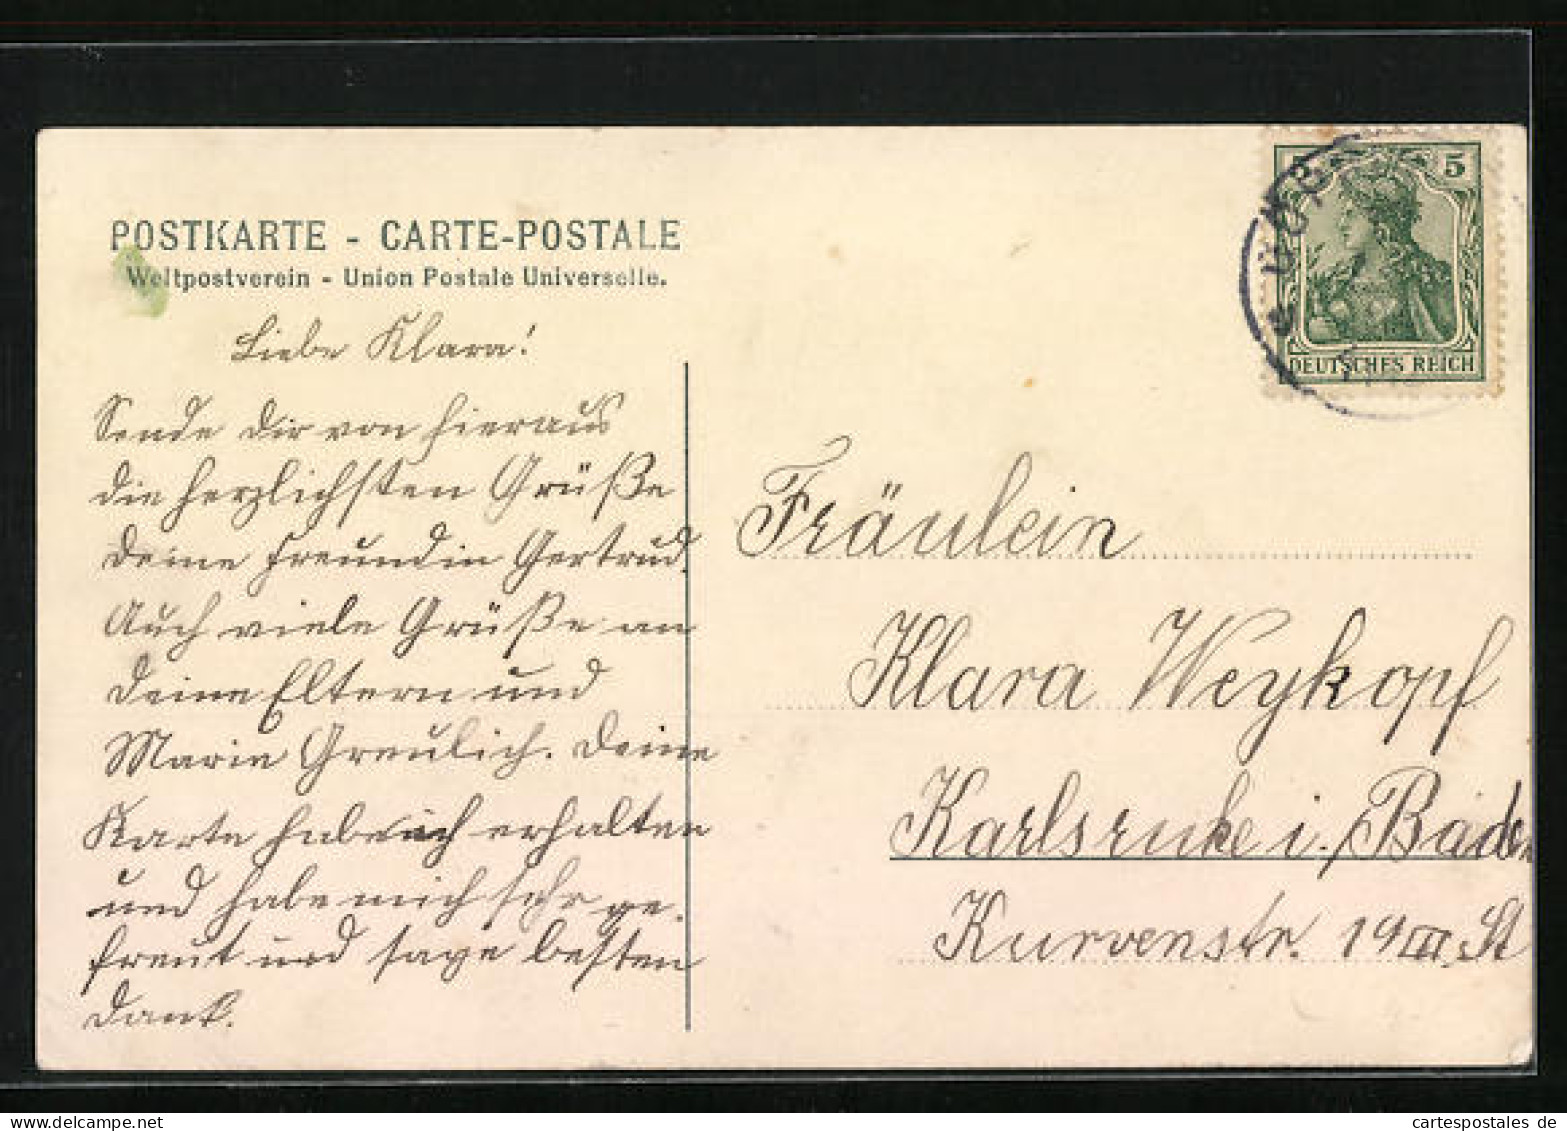 POSTKARTE - CARTE-POSTALE
Weltpostverein - Union Postale Universelle.
Liebe Klara!
Sende dir von hieraus
die herzlichsten Grüße
deine Freundin Gertrud.
Auch viele Grüße an
deine Eltern und
Marie Greulich. Deine
Karte habe ich erhalten
und habe mich sehr ge-
freut und sage besten
Dank.
5
DEUTSCHES REICH
Fräulein
Klara Weykopf
Karlsruhe i./Baden
Kurvenstr. 19 III. St
cartespostales de